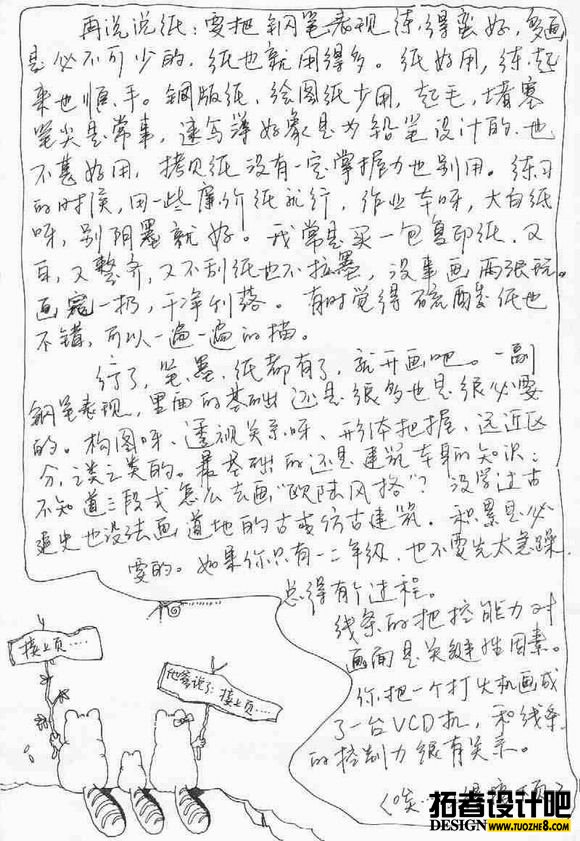 再说说纸：要把钢笔表现练得蛮好，多画
是必不可少的，纸也就用得多。纸好用，练起
来也顺手。铜版纸、绘图纸少用，起毛，堵塞
笔尖是常事，速写簿好象是为铅笔设计的，也
不甚好用，拷贝纸没有一定掌握力也别用。练习
的时候，用一些廉价纸就行，作业本呀，大白纸
呀，别阴墨就好。我常是买一包复印纸，又
白，又整齐，又不刮纸也不拉墨，没事画两张玩。
画完一扔，干净利落。有时觉得硫酸纸也
不错，可以一遍一遍的描。
行了，笔、墨、纸都有了，就开画吧。一副
钢笔表现，里面的基础还是很多也是很必要
的。构图呀、透视关系呀、形体把握，远近区
分，之类之类的。最基础的还是建筑本身的知识；
不知道三段式怎么去画“欧陆风格”？没学过古
建史也没法画道地的古或仿古建筑。积累是必
要的。如果你只有一二年级，也不要先太急躁，
总得有个过程。
线条的把控能力对
画面是关键性因素。
你把一个打火机画成
了一台VCD机，和线条
的控制力很有关系。
接上页……
他爸说了：接上页……
拓者设计吧
DESIGN WWW.TUOZHE8.COM